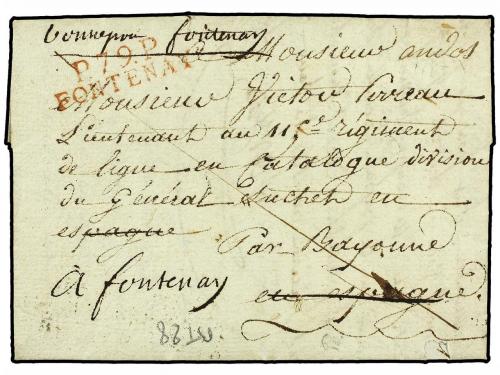 fontenay
P.79.P.
FONTENAY
Monsieur
Monsieur Victor
Lieutenant au 115e régiment
de ligne en Catalogne division
du Général Suchet en
espagne
Par Bayonne
à fontenay
en espagne.